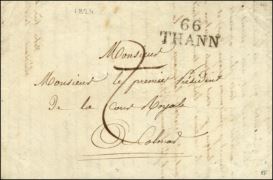 1824
66
THANN
Monsieur
Monsieur le premier Président
De la Cour Royale
a Colmar